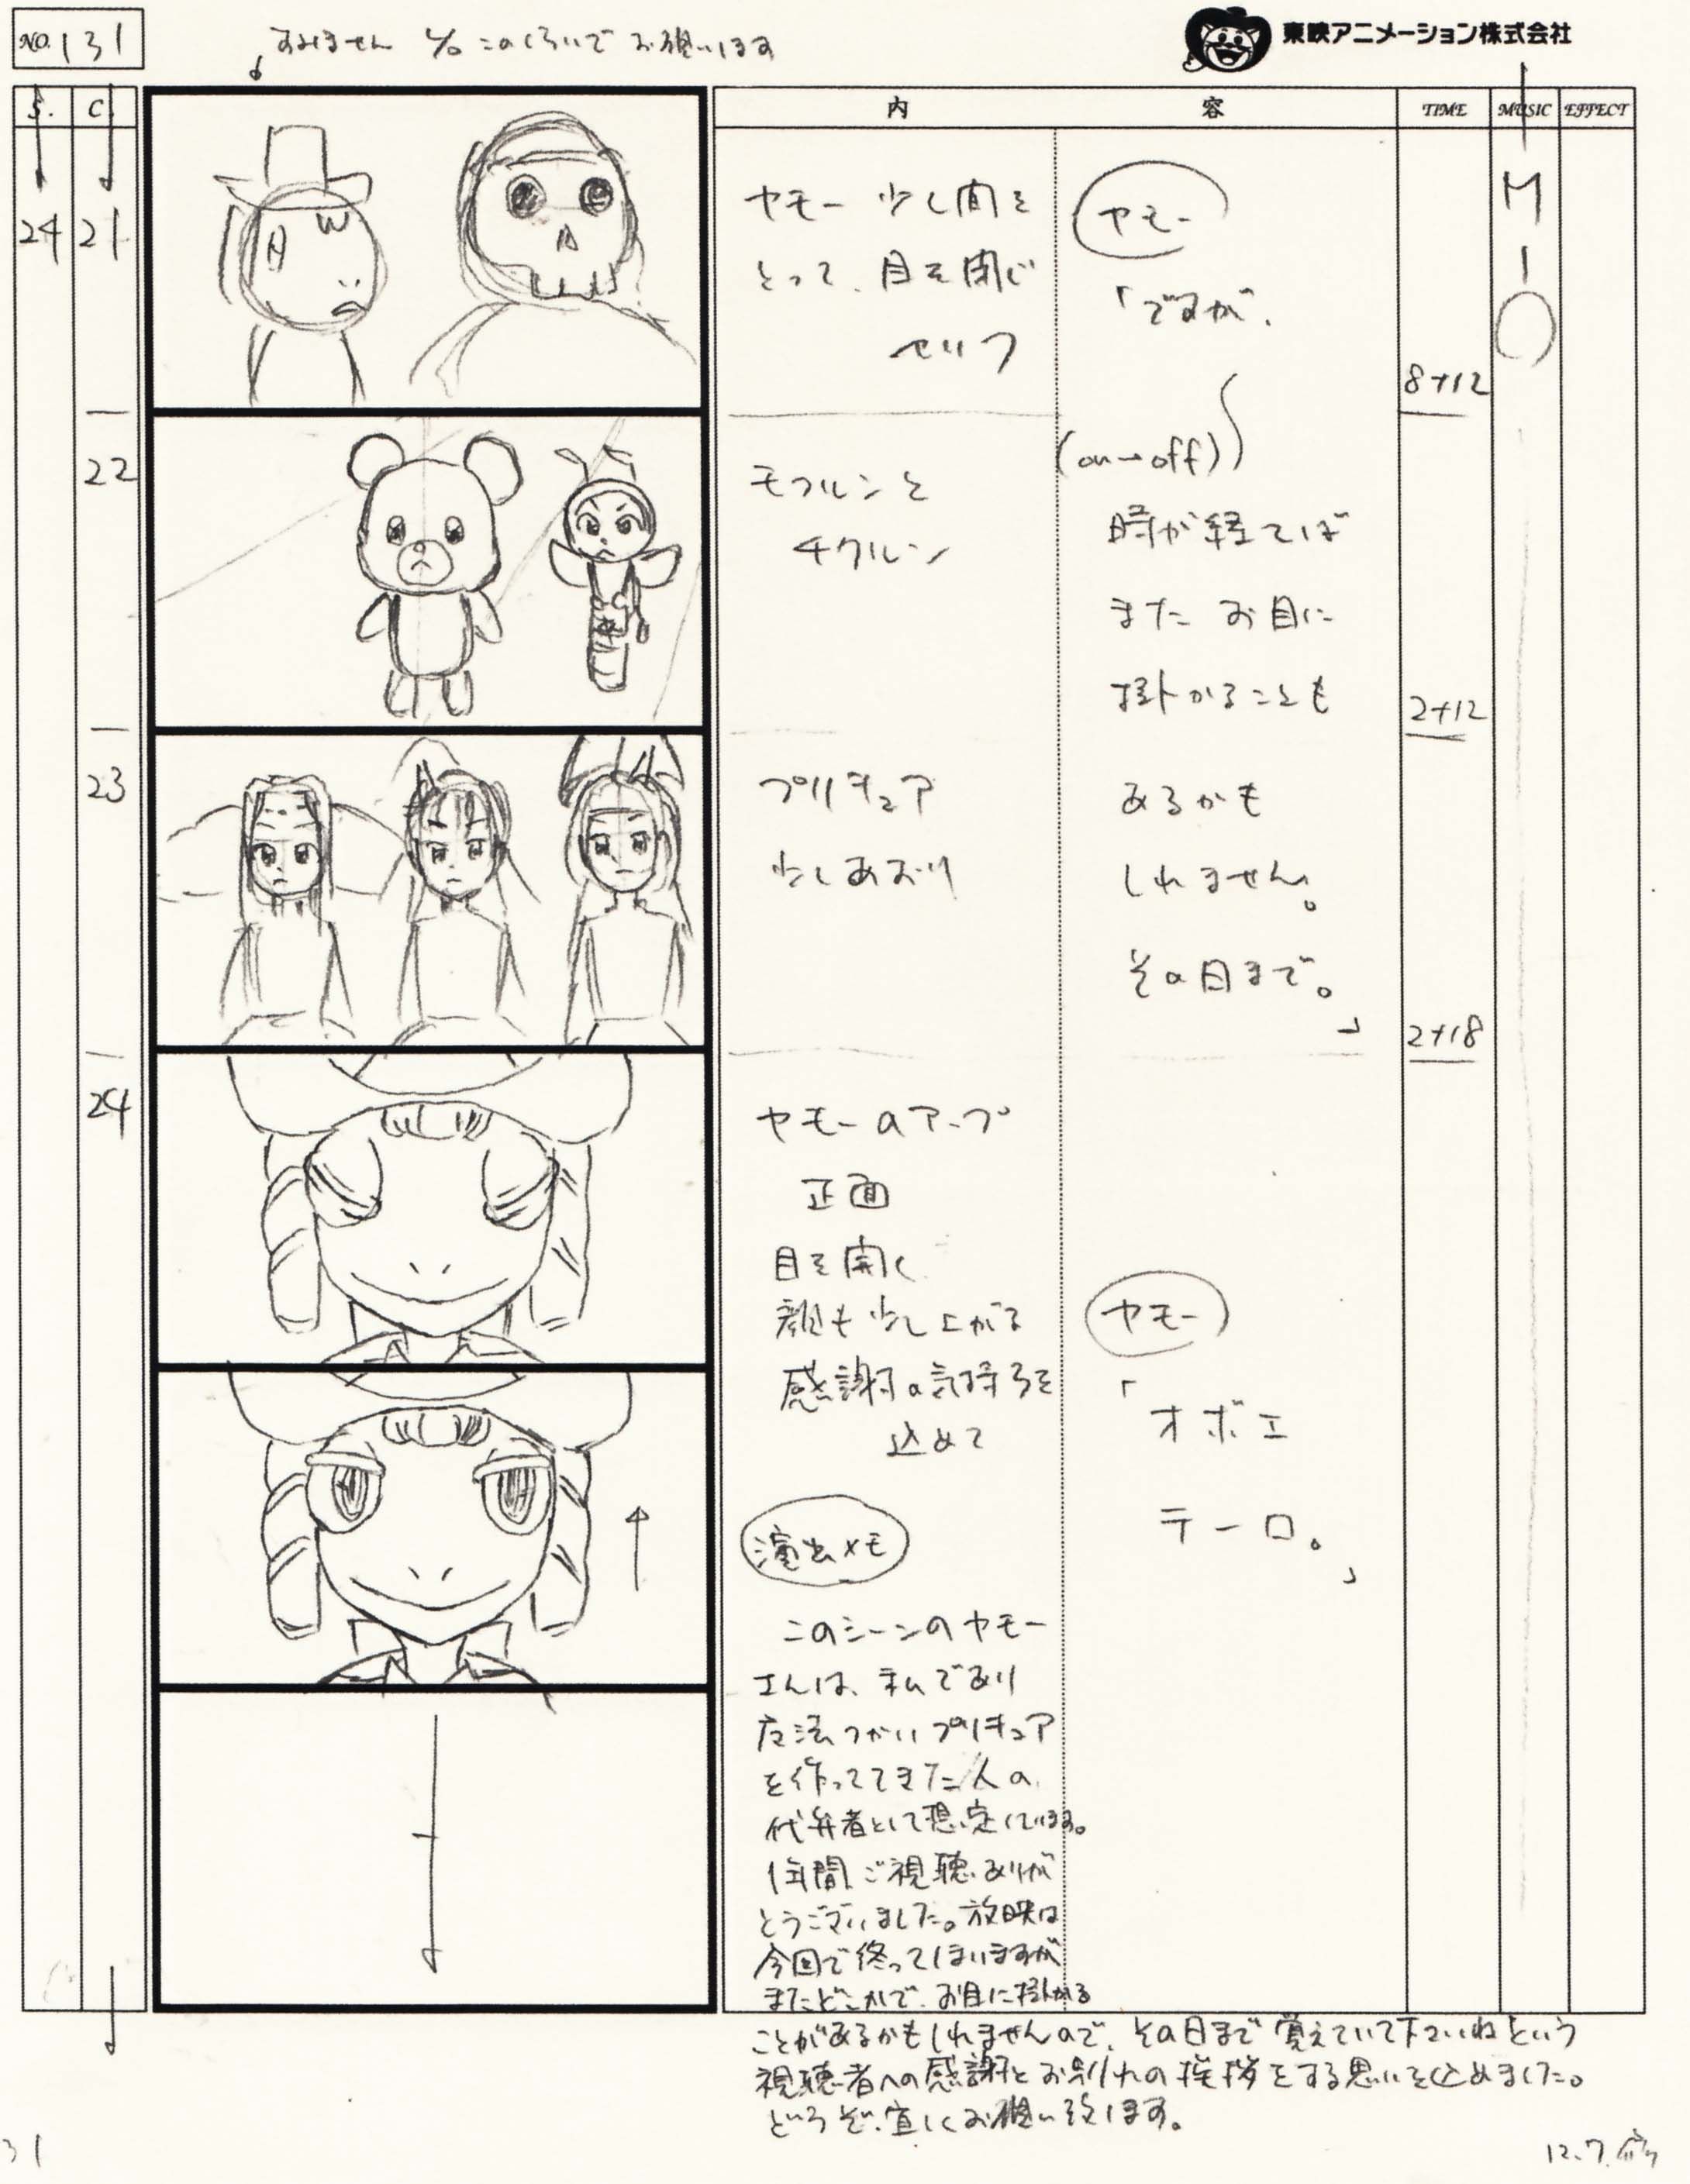 NO. 131
すみません L/O このくらいで お願いします
東映アニメーション株式会社
S. C. 内 容 TIME MUSIC EFFECT
24 21
ヤモー 少し間を
とって、目を閉じ
セリフ
ヤモー
「ですが、
8+12
M
I
O
22
モフルンと
チクルン
(on→off)
時が経てば
また お目に
掛かることも
2+12
23
プリキュア
少しあおり
あるかも
しれません。
その日まで。
」
2+18
24
ヤモーのアップ
正面
目を開く
顔も少し上がる
感謝の気持ちを
込めて
ヤモー
「オボエ
テーロ。
」
演出メモ
このシーンのヤモー
さんは、私であり
魔法つかいプリキュア
を作ってきた人の
代弁者として想定しています。
1年間ご視聴ありが
とうございました。放映は
今回で終ってしまいますが
またどこかで、お目に掛かる
ことがあるかもしれませんので、その日まで覚えていて下さいねという
視聴者への感謝とお別れの挨拶をする思いを込めました。
どうぞ、宜しくお願い致します。
31
12.7.